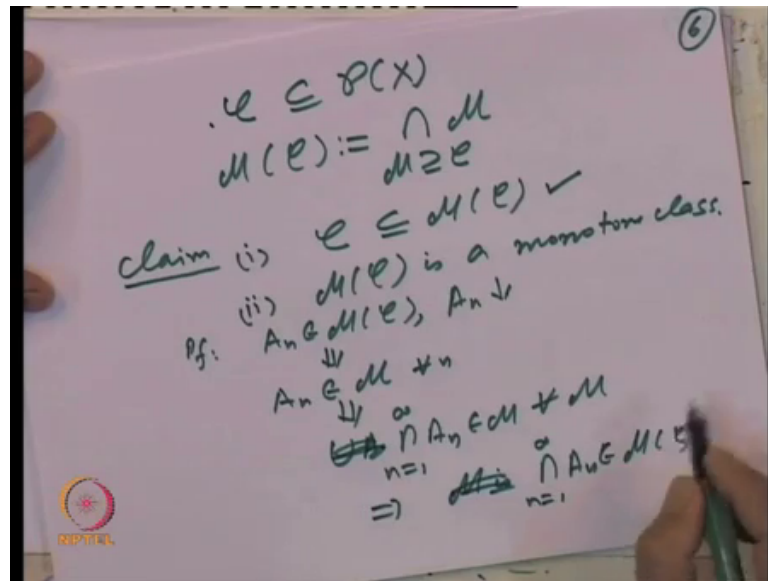 6
C ⊆ P(X)
M(C) := ∩ M
M ⊇ C
Claim (i) C ⊆ M(C) ✓
(ii) M(C) is a monotone class.
Pf: An ∈ M(C), An ↓
⇓
An ∈ M ∀ n
⇓
∞
∩ An ∈ M ∀ M
n=1
∞
⇒ ∩ An ∈ M(C
n=1
NPTEL